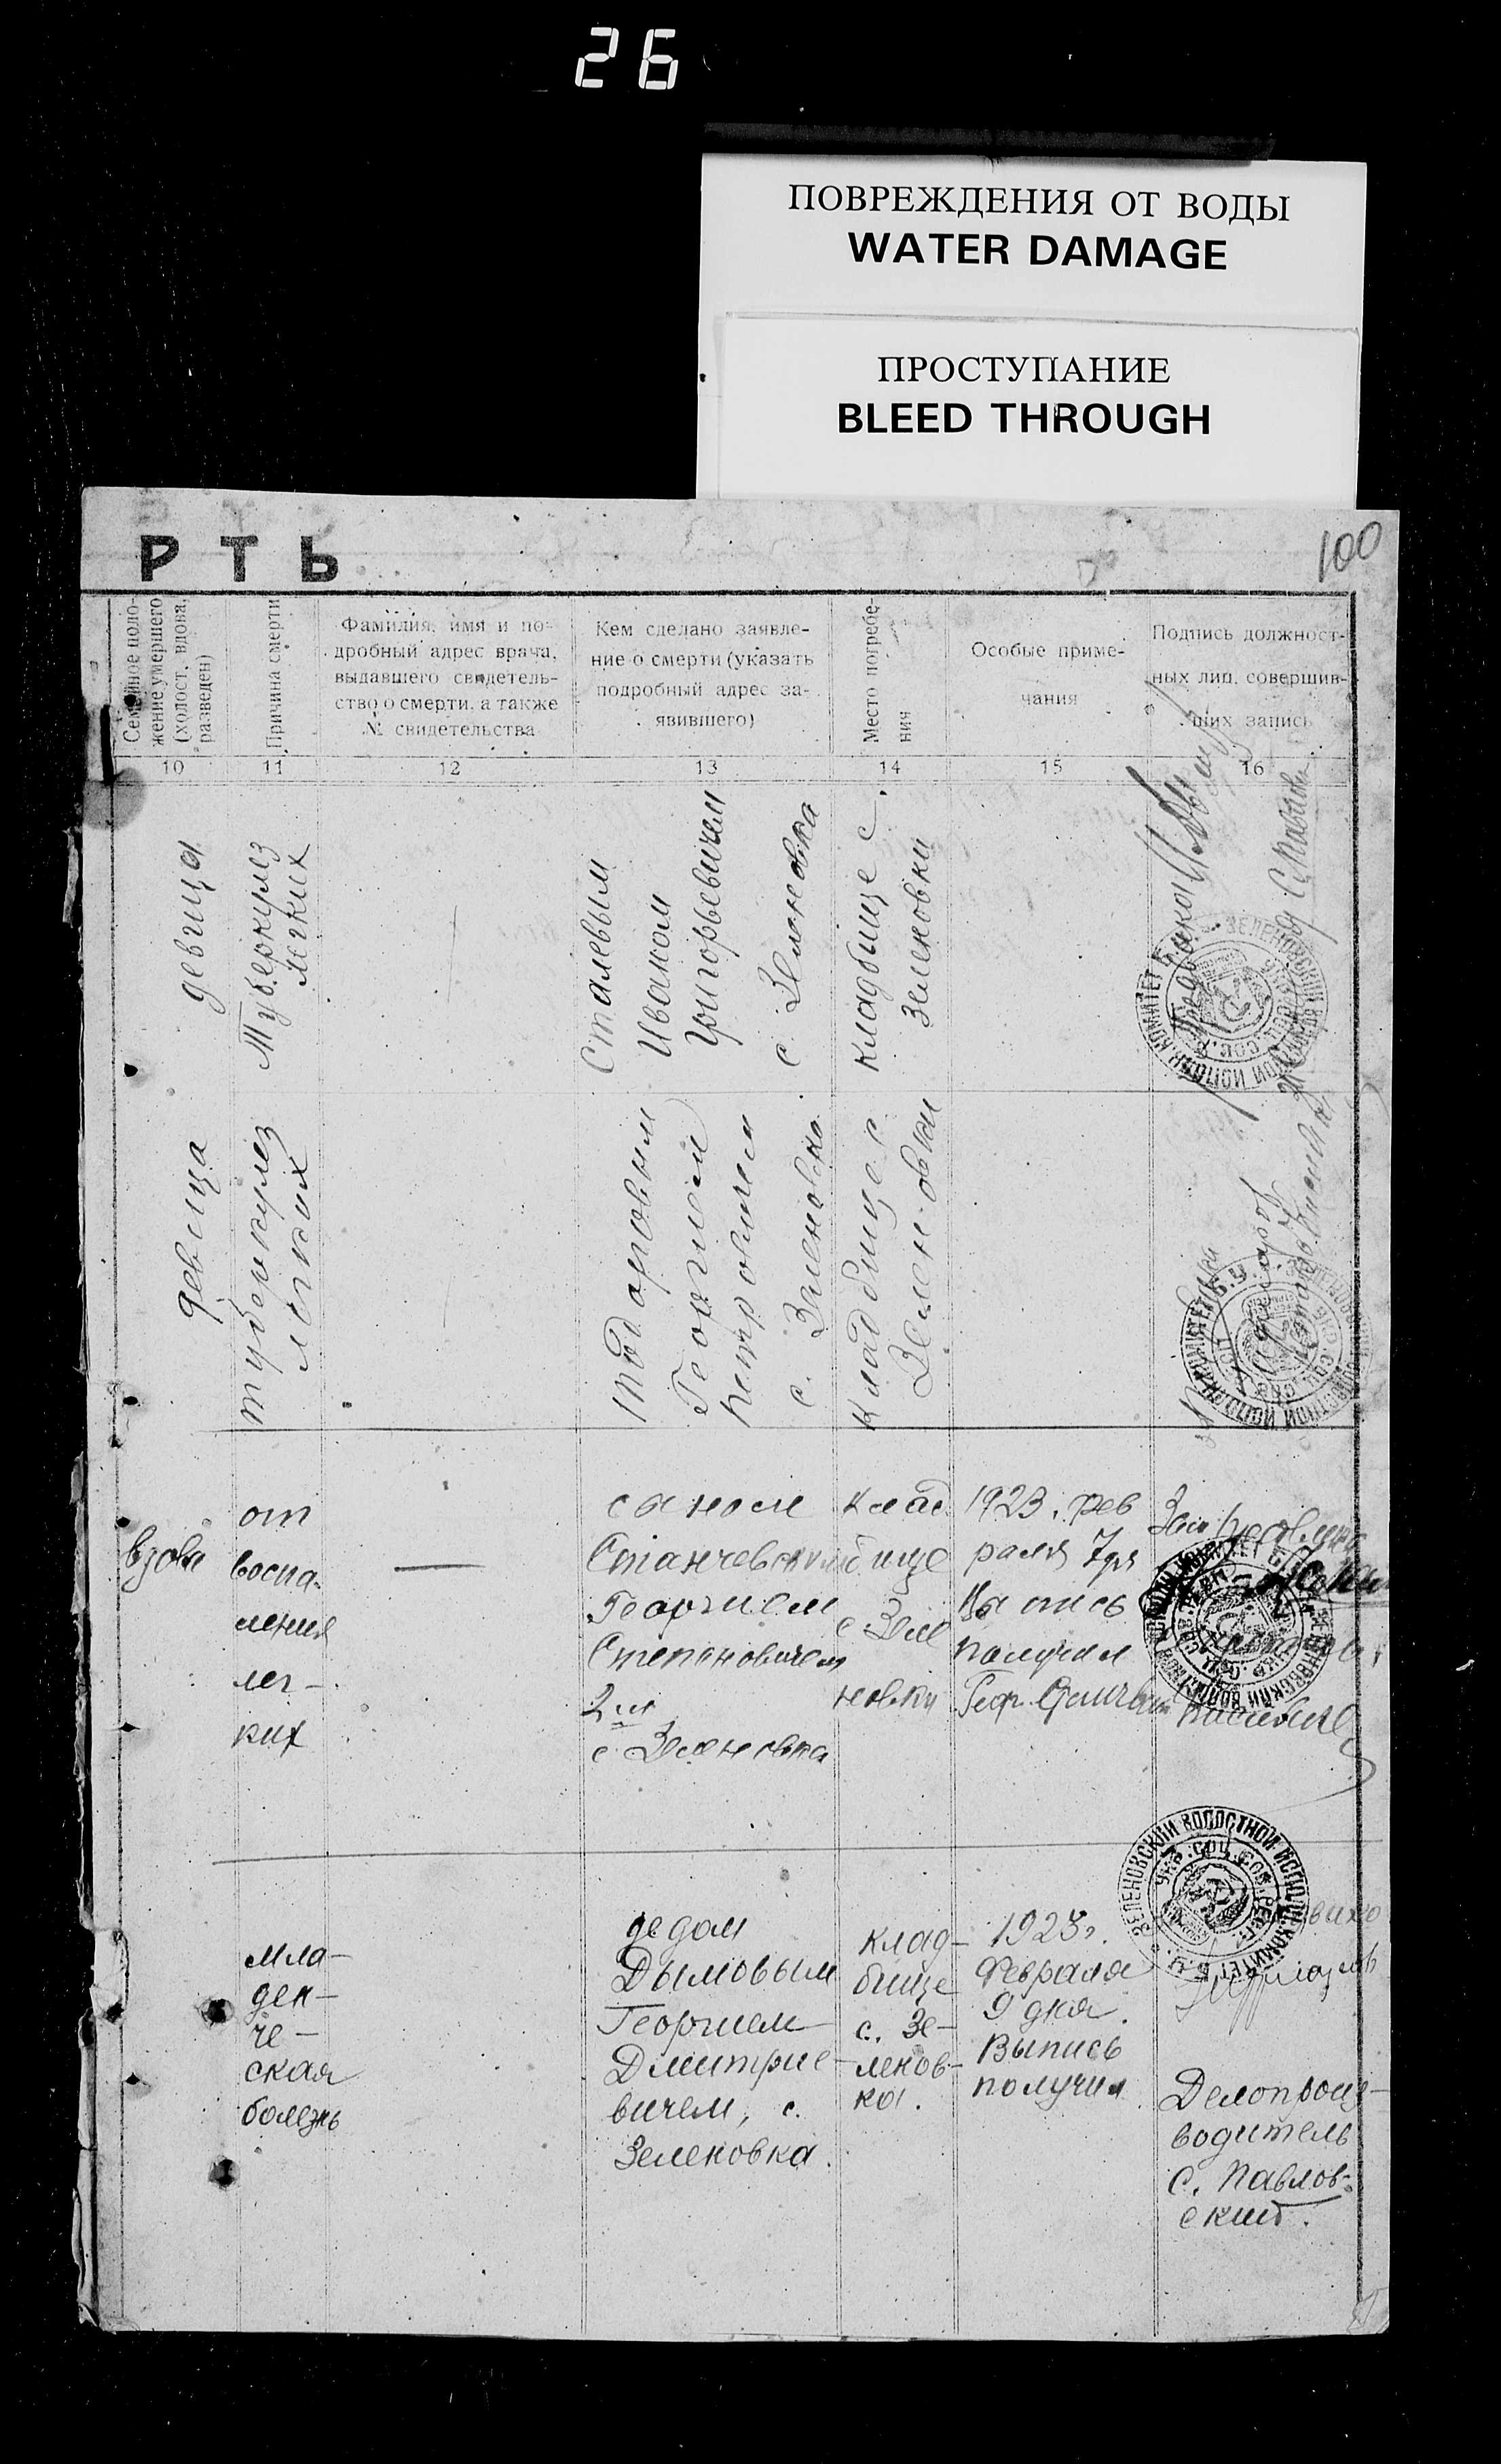 26
ПОВРЕЖДЕНИЯ ОТ ВОДЫ
WATER DAMAGE
ПРОСТУПАНИЕ
BLEED THROUGH
100
Р Т Ь
Семейное поло-
жение умершего
(холост, вдова,
разведен)
Причина смерти
Фамилия, имя и по-
дробный адрес врача,
выдавшего свидетель-
ство о смерти, а также
№ свидетельства
Кем сделано заявле-
ние о смерти (указать
подробный адрес за-
явившего)
Место погребе-
ния
Особые приме-
чания
Подпись должност-
ных лиц, совершив-
ших запись
10
11
12
13
14
15
16
девица
Туберкулез
легких
Сталевым
Иваном
Григорьевичем
с. Зеленовка
кладбище с.
Зеленовки
девица
туберкулез
легких
Тодоровым
Георгием
Петровичем
с. Зеленовка
Кладбище с.
Зеленовки
вдова
от
воспа-
ления
лег-
ких
сыном
Станчевским
Георгием
Степановичем
с Зеленовка
клад
бище
с Зеле
новки
1923. фев
раля 7 дня
Выпись
получил
Геор.
мла-
ден-
че-
ская
болезнь
дедом
Дымовым
Георгием
Дмитрие-
вичем, с.
Зеленовка.
клад-
бище
с. Зе-
ленов-
ка.
1923г.
Февраля
9 дня.
Выпись
получил
ЗЕЛЕНОВСКИЙ ВОЛОСТНОЙ ИСПОЛН. КОМИТЕТ Б. У.
УКР. СОЦ. СОВ. РЕСП.
Делопроиз-
водитель
С. Павлов-
ский.